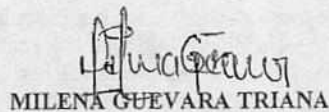 MILENA GUEVARA TRIANA